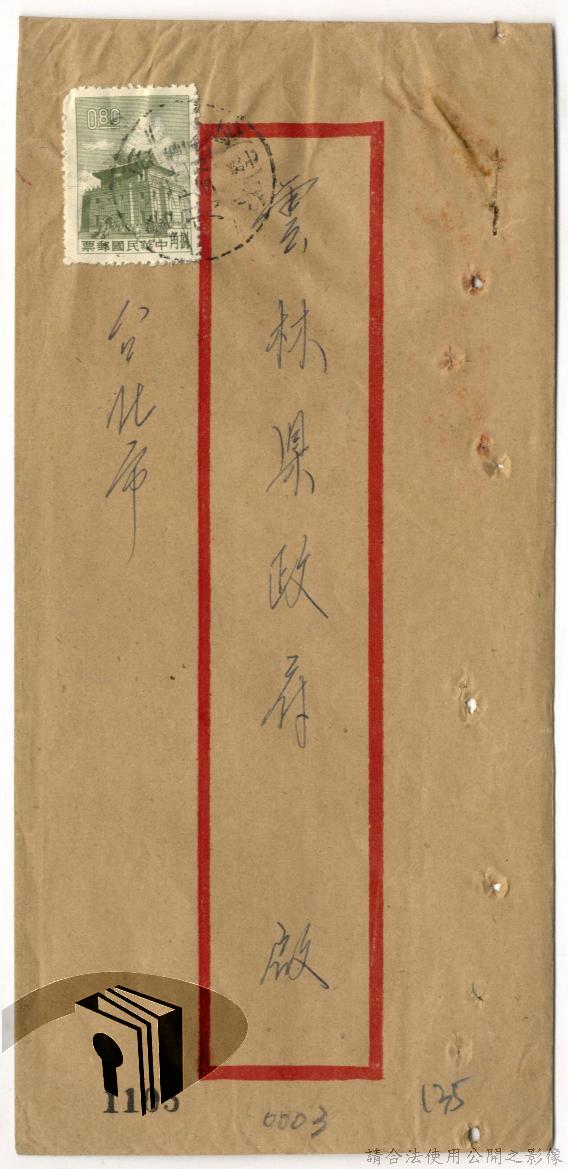 0.80
票郵國民華中角捌
雲林県政府 啟
台北市
1103
0003
135
請合法使用公開之影像